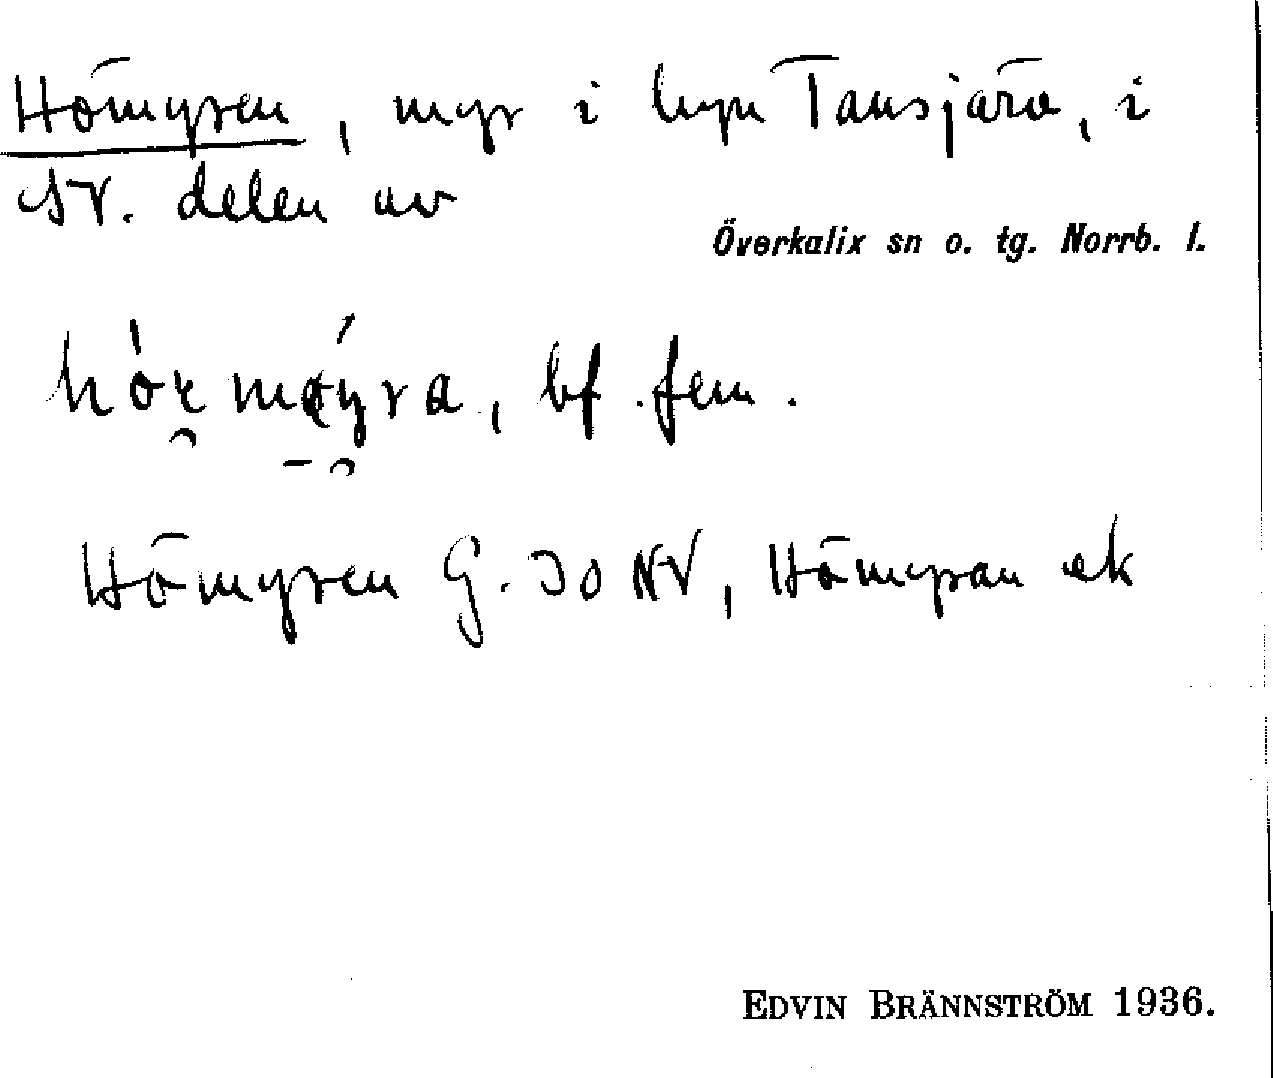 Hömyren, myr i byn Tansjärv, i
SV. delen av
Överkalix sn o. tg. Norrb. l.
bf. fem.
Hömyren G. 30 NV, Hömyran ek
EDVIN BRÄNNSTRÖM 1936.